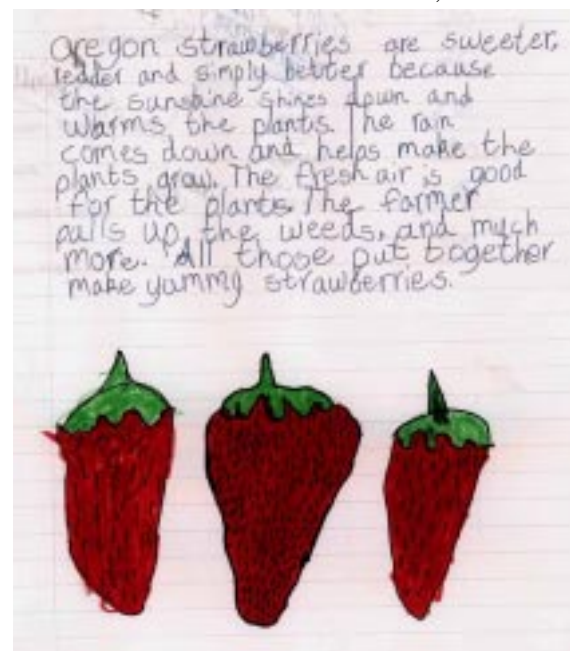 Oregon strawberries are sweeter,
redder and simply better because
the sunshine shines down and
warms the plants. The rain
comes down and helps make the
plants grow. The fresh air is good
for the plants. The farmer
pulls up the weeds, and much
more. All those put together
make yummy strawberries.